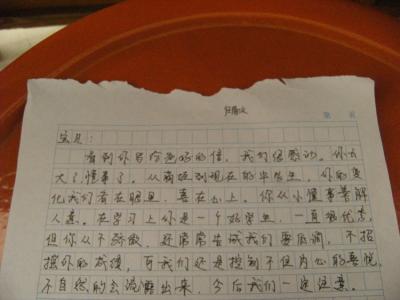 宝儿：
看到你写给爸妈的信，我们很感动。你长
大了懂事了。从幼稚到现在的毕业生，你的变
化我们看在眼里，喜在心上。你从小懂事善解
人意。在学习上你是一个好学生，一直很优秀，
但你从不骄傲，还常常告诫我们要低调，不招
摇你的成绩，可我们还是控制不住内心的喜悦，
不自然的会流露出来，今后我们一定注意。